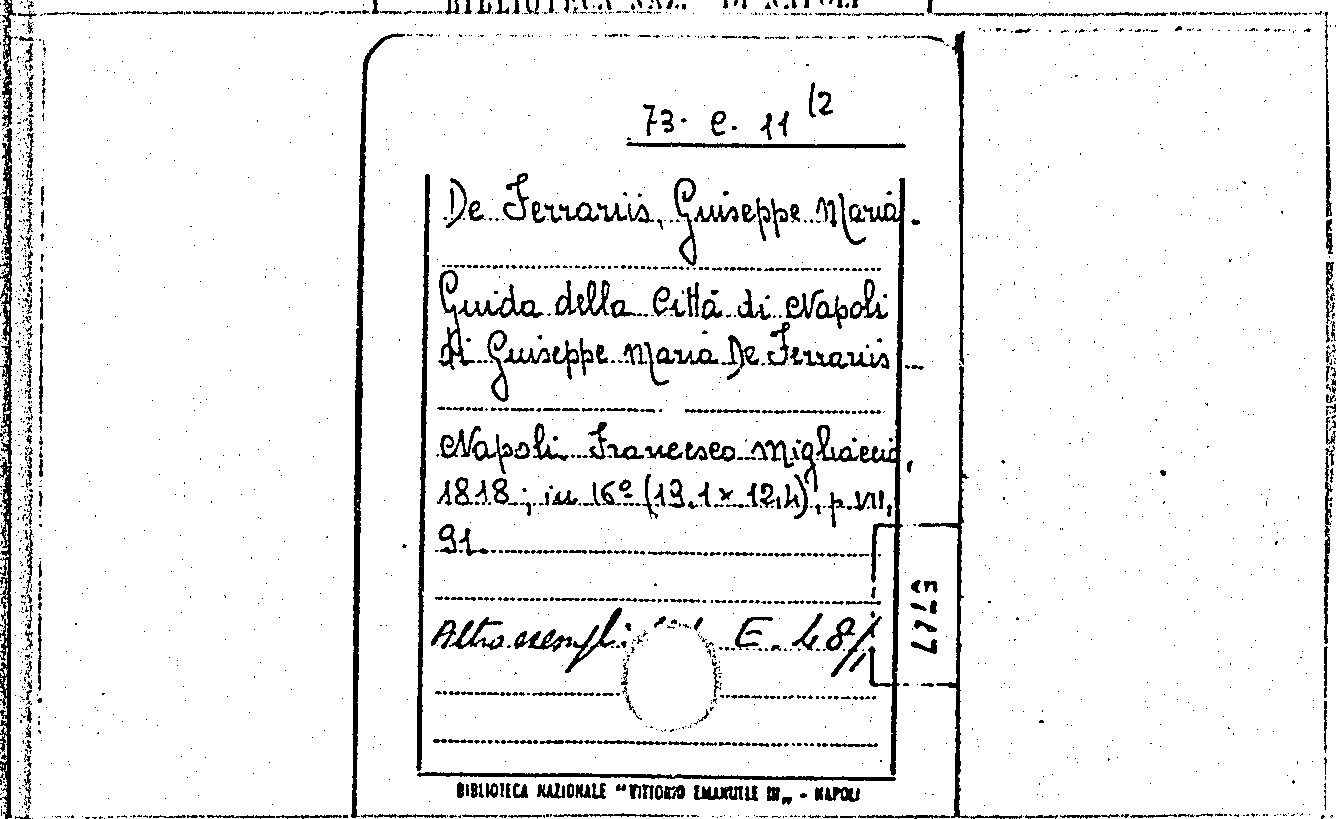 BIBLIOTECA NAZ. DI NAPOLI
73. C. 11 (2
De Ferrariis, Giuseppe Maria.
Guida della Città di Napoli
di Giuseppe Maria De Ferrariis
Napoli Francesco Migliaccio,
1818; in 16º (19.1 x 12,4), p. VII,
91.
Altro esempl. E. 48/1
5767
BIBLIOTECA NAZIONALE "VITTORIO EMANUELE III„ - NAPOLI